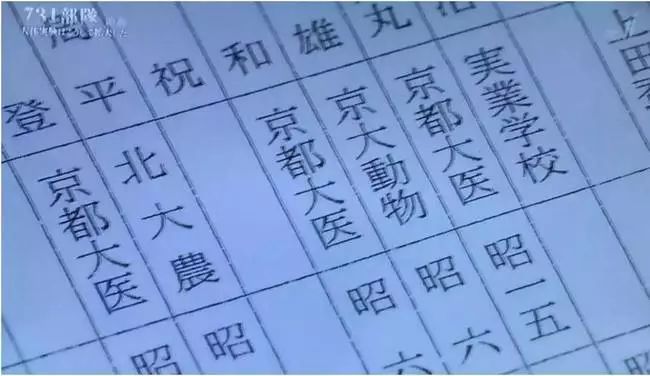 731部隊 前編
人体実験はこうして拡大した
上田
実業学校
丸 京都大医 昭一五
雄 京大動物 昭六
和 京都大医 昭六
祝
平 北大農 昭
登 京都大医 昭